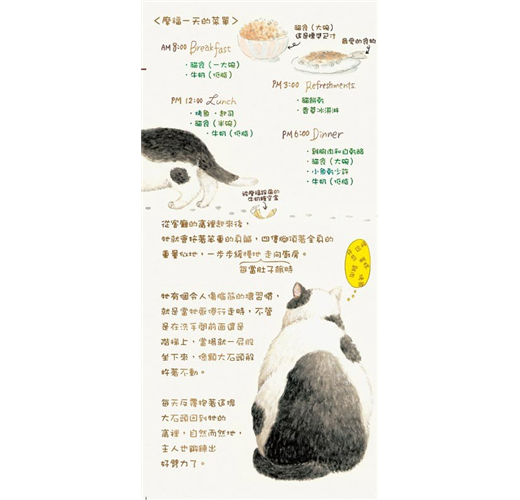 <摩福一天的菜單>
貓食（大碗）
這是標準尺寸
最愛的食物
AM 8:00 Breakfast
・貓食（一大碗）
・牛奶（低脂）
PM 3:00 Refreshments
・貓餅乾
・香草冰淇淋
PM 12:00 Lunch
・烤魚、起司
・貓食（半碗）
・牛奶（低脂）
PM 6:00 Dinner
・雞胸肉和白乾酪
・貓食（大碗）
・小魚乾少許
・牛奶（低脂）
從客廳的窩裡起來後，
牠就會拖著笨重的身軀，四隻腳頂著全身的
重量似地，一步步緩慢地 走向廚房。
每當肚子餓時
牠有個令人傷腦筋的壞習慣，
就是當牠厭倦行走時，不管
是在洗手間前面還是
階梯上，當場就一屁股
坐下來，像顆大石頭般
杵著不動。
每天反覆抱著這塊
大石頭回到牠的
窩裡，自然而然地，
主人也鍛鍊出
好臂力了。